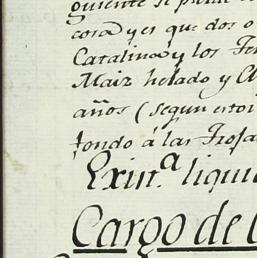 guiente se
cosa y es que dos o
Catalina y los
Maiz helado y
años (segun estoi
fondo á las Trofa
Exist.ª liqui
Cargo de